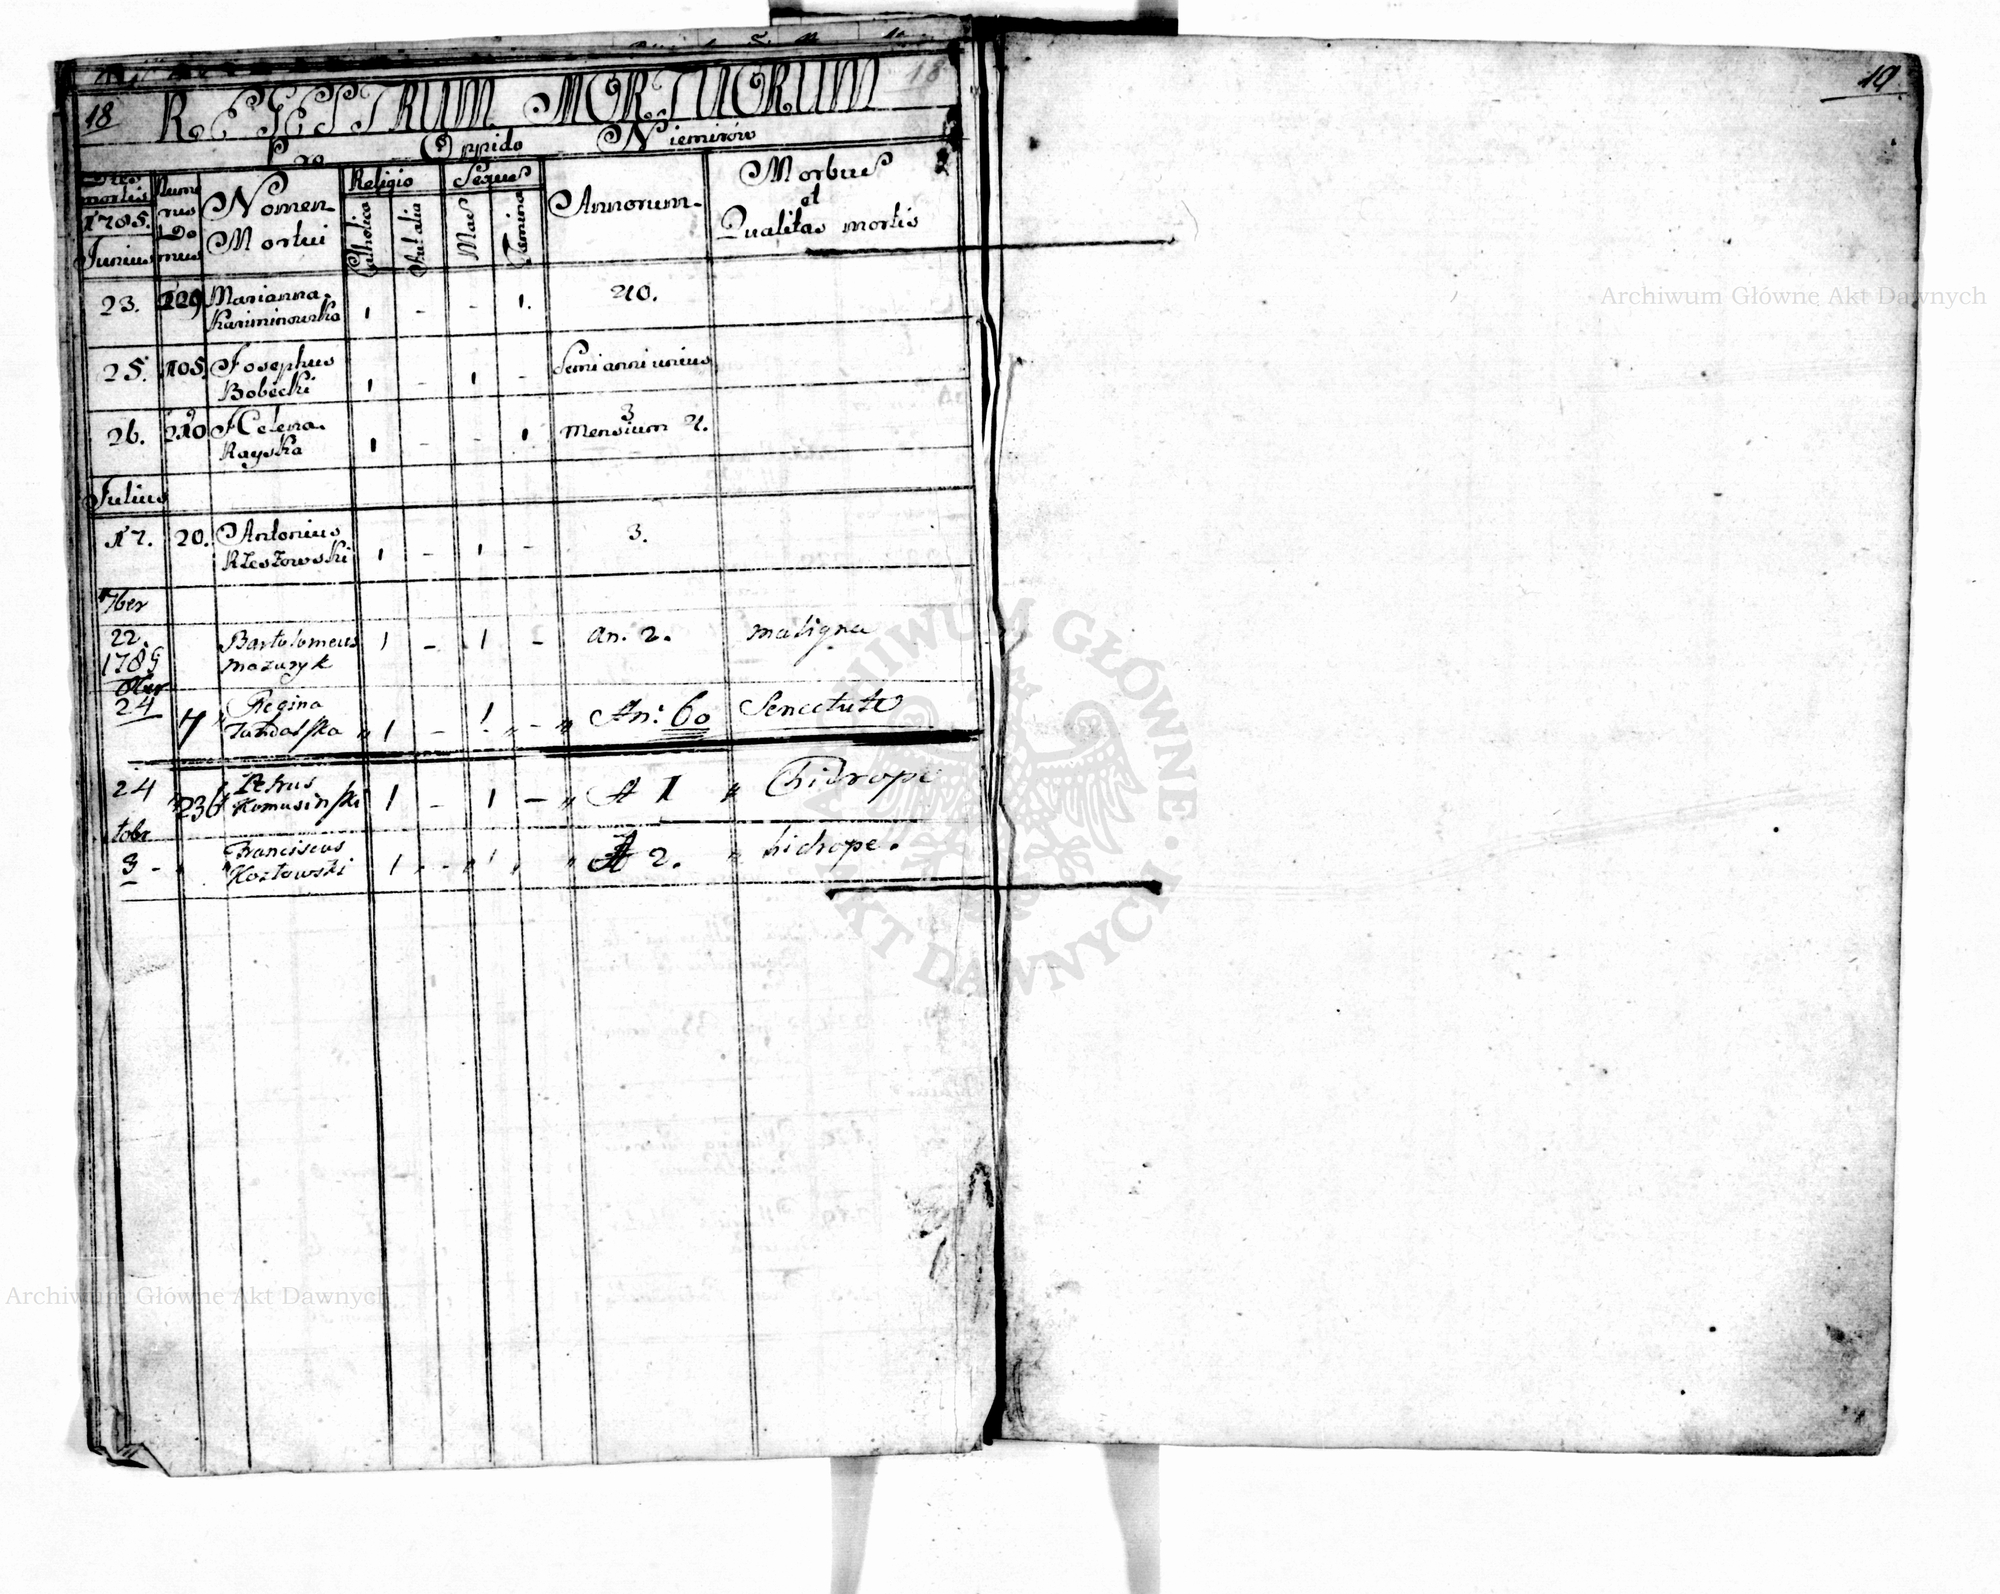 18 18
REGESTRUM MORTUORUM
Pro Oppido Niemirów
Dies mortis 1785. Junius
Numerus Domus
Nomen Mortui
Religio
Catholica
Sexus
Mas
Femina
Annorum
Morbus et Qualitas mortis
23. 129 Marianna 1 - - 1. 40.
25. 105. Josephus 1 - 1 - Semianniunius
Bobecki
26. 210 Helena 1 - - 1 3
Rayska Mensium
Julius
17. 20. Antonius 1 - 1 - 3.
Rzeszowski
7ber
22. Bartolomeus 1 - 1 - An. 2. maligna
1785 Mazuryk
8ber
24 Regina
7 1 - 1 - An: 60 Senectute
24 Petrus
236 Komusinski 1 - 1 - A 1 hidrope
8 Franciscus
Kozłowski 1 - 1 A 2. hidrope.
19
Archiwum Główne Akt Dawnych
Archiwum Główne Akt Dawnych
ARCHIWUM GŁÓWNE · AKT DAWNYCH ·